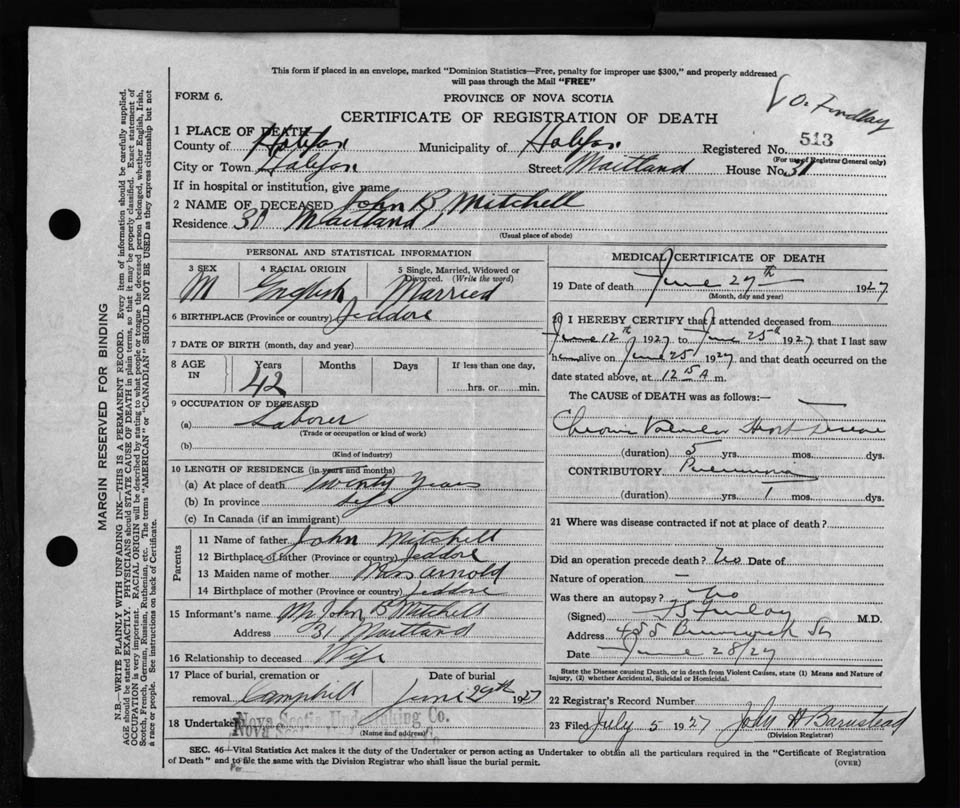 This form if placed in an envelope, marked "Dominion Statistics—Free, penalty for improper use $300," and properly addressed
will pass through the Mail "FREE"
FORM 6.
PROVINCE OF NOVA SCOTIA
Findlay
CERTIFICATE OF REGISTRATION OF DEATH
1 PLACE OF DEATH
County of Halifax Municipality of Halifax Registered No. 513
(For use of Registrar General only)
City or Town Halifax Street Maitland House No. 31
If in hospital or institution, give name
2 NAME OF DECEASED John B Mitchell
Residence 31 Maitland
(Usual place of abode)
PERSONAL AND STATISTICAL INFORMATION
3 SEX 4 RACIAL ORIGIN 5 Single, Married, Widowed or
Divorced. (Write the word)
M English Married
6 BIRTHPLACE (Province or country) Jeddore
7 DATE OF BIRTH (month, day and year)
8 AGE IN Years Months Days If less than one day,
42 hrs. or min.
9 OCCUPATION OF DECEASED
(a) Laborer
(Trade or occupation or kind of work)
(b)
(Kind of industry)
10 LENGTH OF RESIDENCE (in years and months)
(a) At place of death Twenty Years
(b) In province Life
(c) In Canada (if an immigrant)
Parents
11 Name of father John Mitchell
12 Birthplace of father (Province or country) Jeddore
13 Maiden name of mother Miss Arnold
14 Birthplace of mother (Province or country) Jeddore
15 Informant's name Mr John B Mitchell
Address 31 Maitland
16 Relationship to deceased Wife
17 Place of burial, cremation or Date of burial
removal Camphill June 29th 1927
18 Undertaker Nova Scotia Undertaking Co.
(Name and address)
MEDICAL CERTIFICATE OF DEATH
19 Date of death June 27th 1927
(Month, day and year)
20 I HEREBY CERTIFY that I attended deceased from
June 12th 1927 to June 25th 1927 that I last saw
him alive on June 25 1927 and that death occurred on the
date stated above, at 12 15 A m.
The CAUSE of DEATH was as follows:—
Chronic Valvular Heart Disease
(duration) 5 yrs. mos. dys.
CONTRIBUTORY Pneumonia
(duration) yrs. 1 mos. dys.
21 Where was disease contracted if not at place of death?
Did an operation precede death? No Date of
Nature of operation —
Was there an autopsy? No
(Signed) Findlay M.D.
Address Brunswick St
Date June 28/27
State the Disease Causing Death, or in death from Violent Causes, state (1) Means and Nature of
Injury, (2) whether Accidental, Suicidal or Homicidal.
22 Registrar's Record Number
23 Filed July 5 1927 John H Barnstead
(Division Registrar)
SEC. 46—Vital Statistics Act makes it the duty of the Undertaker or person acting as Undertaker to obtain all the particulars required in the "Certificate of Registration
of Death" and to file the same with the Division Registrar who shall issue the burial permit. (OVER)
Per
MARGIN RESERVED FOR BINDING
N.B.—WRITE PLAINLY WITH UNFADING INK—THIS IS A PERMANENT RECORD. Every item of information should be carefully supplied.
AGE should be stated EXACTLY. PHYSICIANS should STATE CAUSE OF DEATH in plain terms, so that it may be properly classified. Exact statement of
OCCUPATION is very important. RACIAL ORIGIN will be described by stating to what people or tongue the deceased person belonged, whether English, Irish,
Scotch, French, German, Russian, Ruthenian, etc. The terms "AMERICAN" or "CANADIAN" SHOULD NOT BE USED as they express citizenship but not
a race or people. See instructions on back of Certificate.